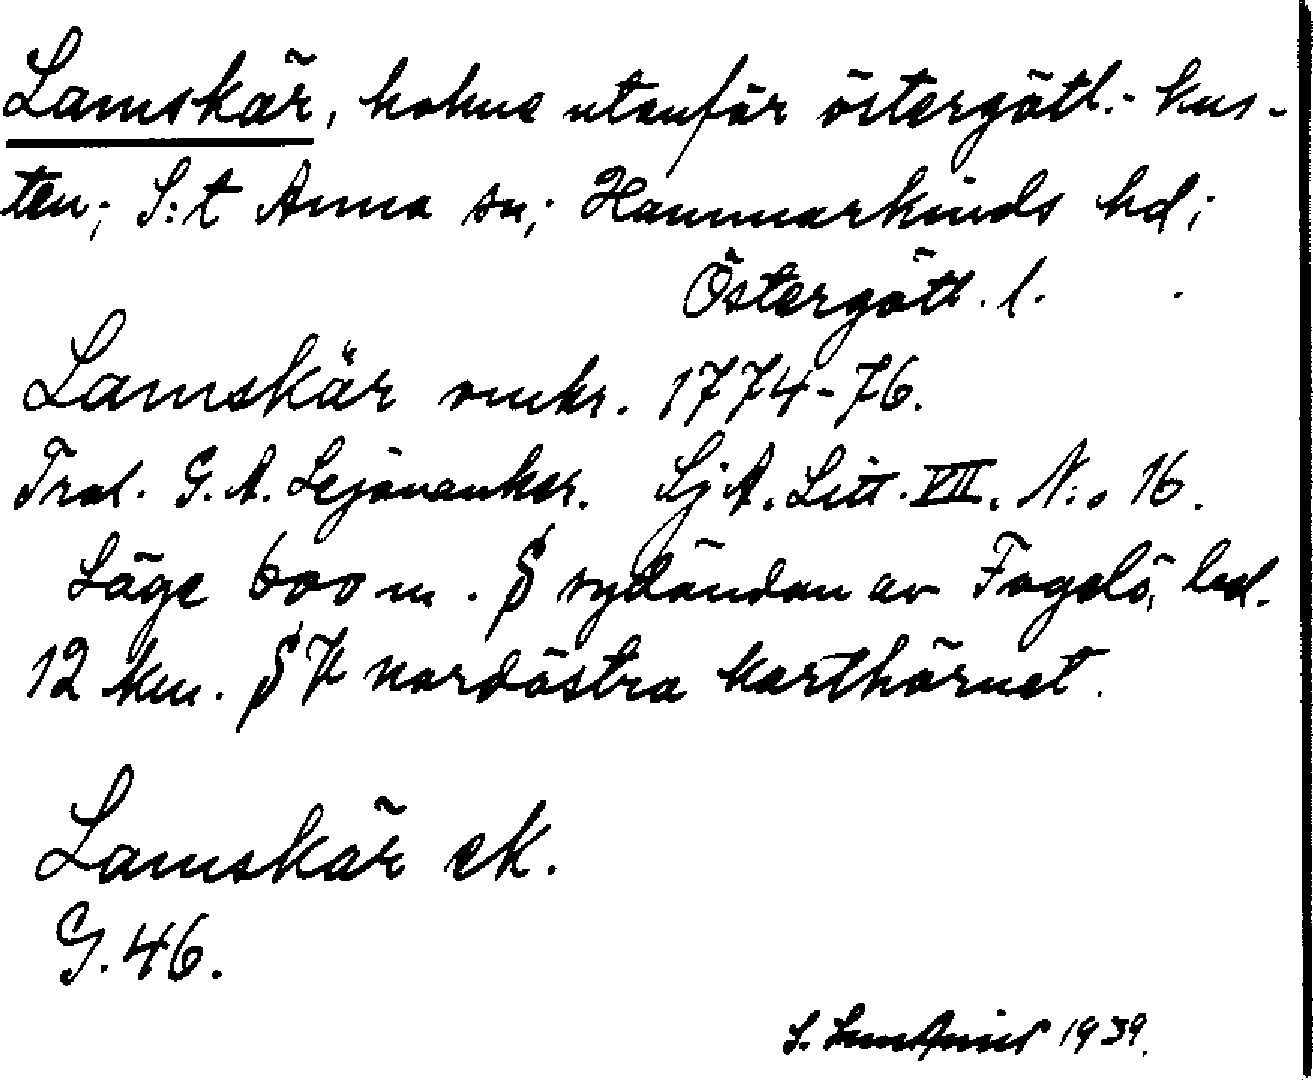 Lamskär, holme utanför östergötl.- kus-
ten; S:t Anna sn; Hammarkinds hd;
Östergötl. l.
Lamskär omkr. 1774-76.
Trol. G. A. Lejonanker. Sj A. Litt. VII. N:o 16.
Läge 600 m. § sydändan av Fogelö,
12 km. § nordöstra karthörnet.
Lamskär ek.
G. 46.
S. 1939.